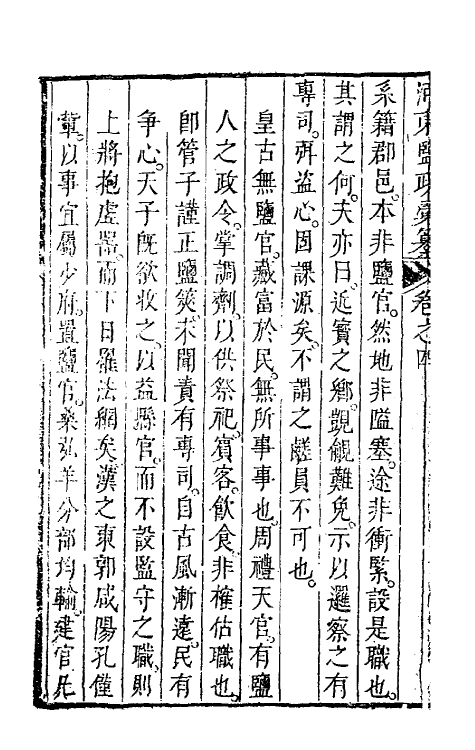 河東鹽政彙纂 卷之四
系籍郡邑。本非鹽官。然地非隘塞。途非衝緊。設是職也。
其謂之何。夫亦曰。近寶之鄉。覬覦難免。示以邏察之有
專司。弭盜心。固課源矣。不謂之鹺員不可也。
皇古無鹽官。藏富於民。無所事事也。周禮天官。有鹽
人之政令。掌調劑。以供祭祀。賓客。飲食。非榷估職也。
卽管子謹正鹽筴。未聞責有專司。自古風漸遠。民有
爭心。天子旣欲收之。以益縣官。而不設監守之職。則
上將抱虛器。而下日羅法網矣。漢之東郭咸陽孔僅
輩。以事宜屬少府。置鹽官。桑弘羊分部均輸。建官凡